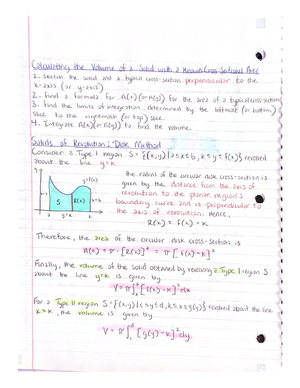 Calculating the Volume of a Solid with a Known Cross-Sectional Area
1. Sketch the solid and a typical cross-section perpendicular to the
x-axis (or y-axis)
2. Find a formula for A(x) (or A(y)) for the area of a typical cross-section
3. Find the limits of integration, determined by the leftmost (or bottom)
slice to the rightmost (or top) slice.
4. Integrate A(x) (or A(y)) to find the volume.
Solids of Revolution: Disk Method
Consider a Type I region S = {(x,y) | a ≤ x ≤ b, k ≤ y ≤ f(x)} revolved
about the line y=k
y=f(x)
S
R(x)
y=k
the radius of the circular disk cross-section is
given by the distance from the axis of
revolution to the planar region's
boundary curve and is perpendicular to
the axis of revolution. Hence,
R(x) = f(x) - k
Therefore, the area of the circular disk cross-section is
A(x) = π · [R(x)]² = π [f(x)-k]²
Finally, the volume of the solid obtained by revolving a Type I region S
about the line y=k is given by
V = π∫ₐᵇ [f(x)-k]² dx
For a Type II region S = {(x,y) | c ≤ y ≤ d, k ≤ x ≤ g(y)} revolved about the line
x = k, the volume is given by
V = π∫ [g(y)-k]² dy